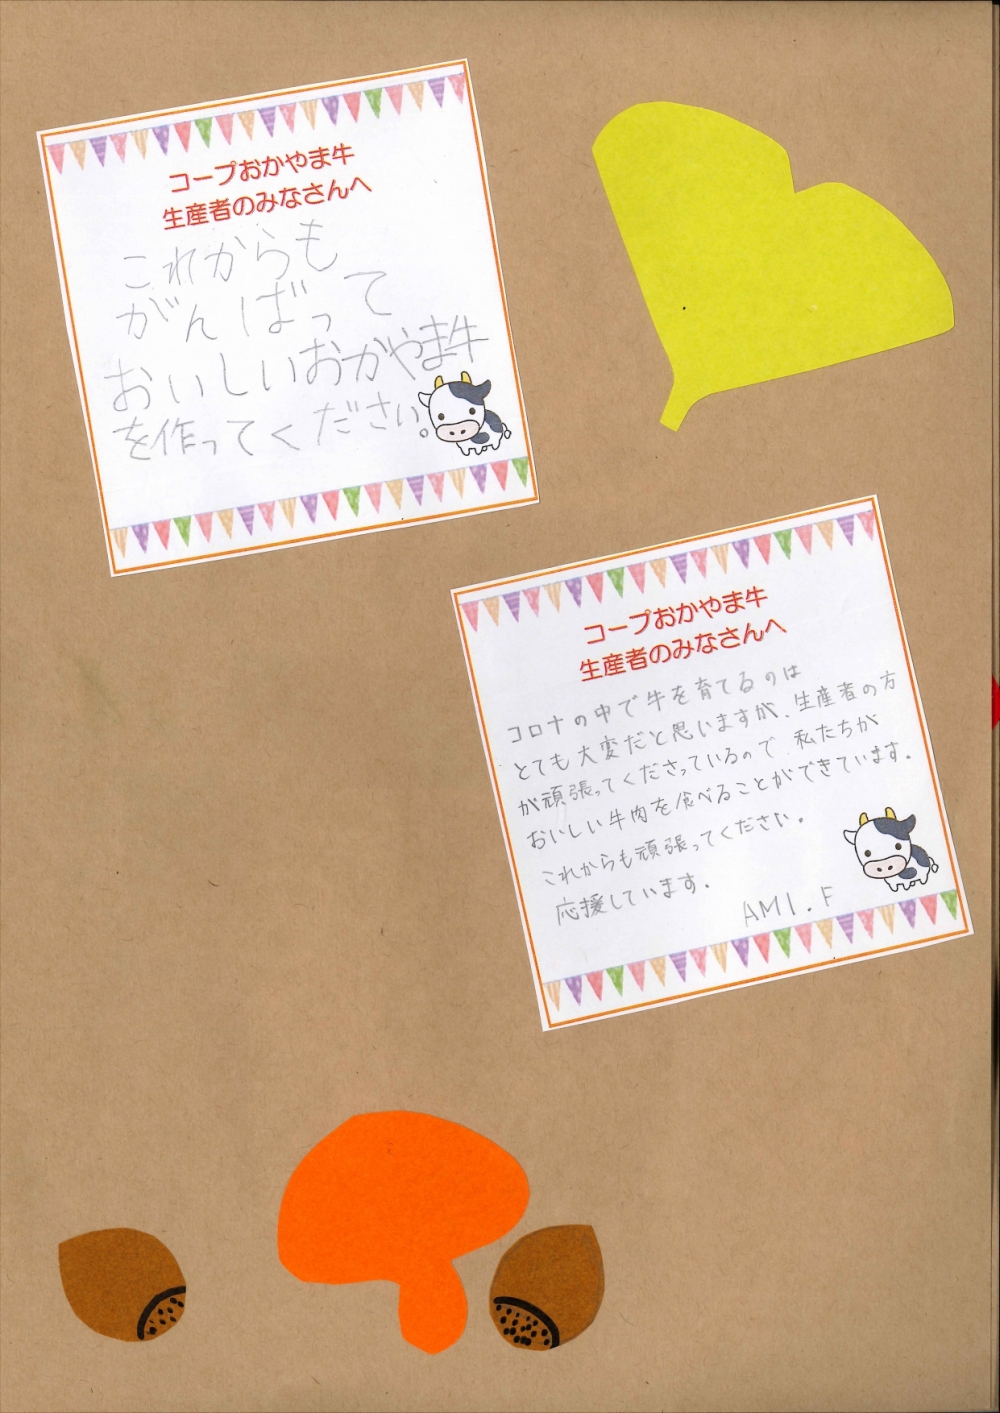 コープおかやま牛
生産者のみなさんへ
これからも
がんばって
おいしいおかやま牛
を作ってください。
コープおかやま牛
生産者のみなさんへ
コロナの中で牛を育てるのは
とても大変だと思いますが、生産者の方
が頑張ってくださっているので、私たちが
おいしい牛肉を食べることができています。
これからも頑張ってください。
応援しています。
AMI.F